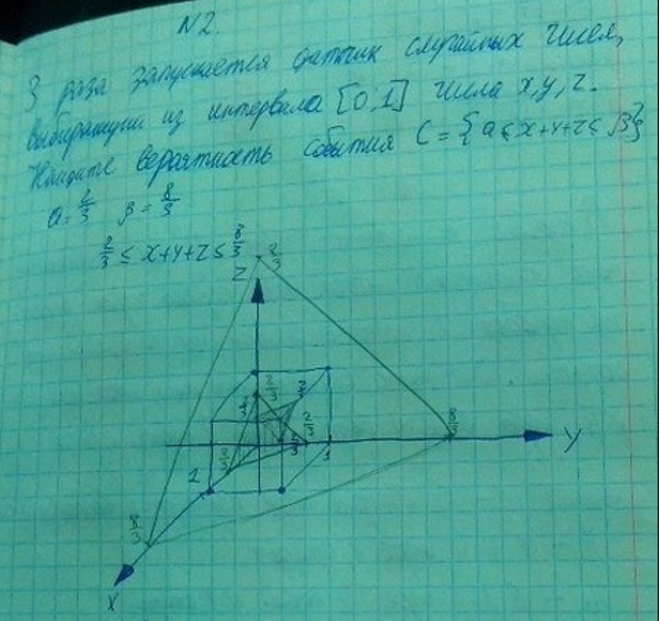 N2.
3 раза запускается датчик случайных чисел,
выбирающий из интервала [0,1] числа x, y, z.
Найдите вероятность события C = {a ≤ x+y+z ≤ β}
a = 2/3 β = 8/3
2/3 ≤ x+y+z ≤ 8/3
2/3
Z
2/3
2/3
2/3
8/3
Y
2/3
1
1
8/3
X